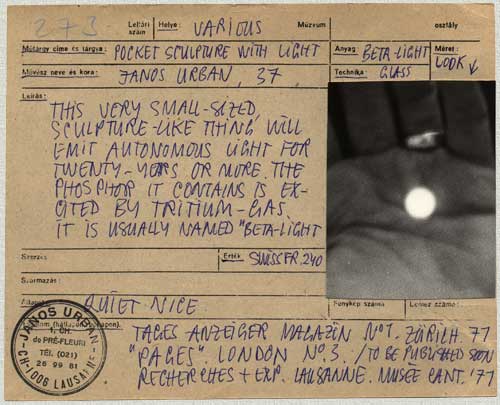 273 Leltári szám Helye: VARIOUS Múzeum osztály
Műtárgy címe és tárgya: POCKET SCULPTURE WITH LIGHT Anyag: BETA-LIGHT Méret: LOOK ↓
Művész neve és kora: JANOS URBAN, 37 Technika: GLASS
Leírás:
THIS VERY SMALL-SIZED
SCULPTURE-LIKE THING WILL
EMIT AUTONOMOUS LIGHT FOR
TWENTY-YEARS OR MORE. THE
PHOSPHOR IT CONTAINS IS EX-
CITED BY TRITIUM-GAS.
IT IS USUALLY NAMED "BETA-LIGHT
Szerzés Érték: SWISSFR. 240
Származás:
Állapot: QUIET NICE Fénykép száma Lemez száma:
TAGES ANZEIGER MAGAZIN No 1. ZÜRICH. 77
"PAGES" LONDON No. 3. / TO BE PUBLISHED SOON
RECHERCHES + EXP. LAUSANNE. MUSÉE CANT. '77
JÁNOS URBAN
1, CH.
de PRÉ-FLEURI
TÉL. (021)
26 99 81
CH-1006 LAUSANNE